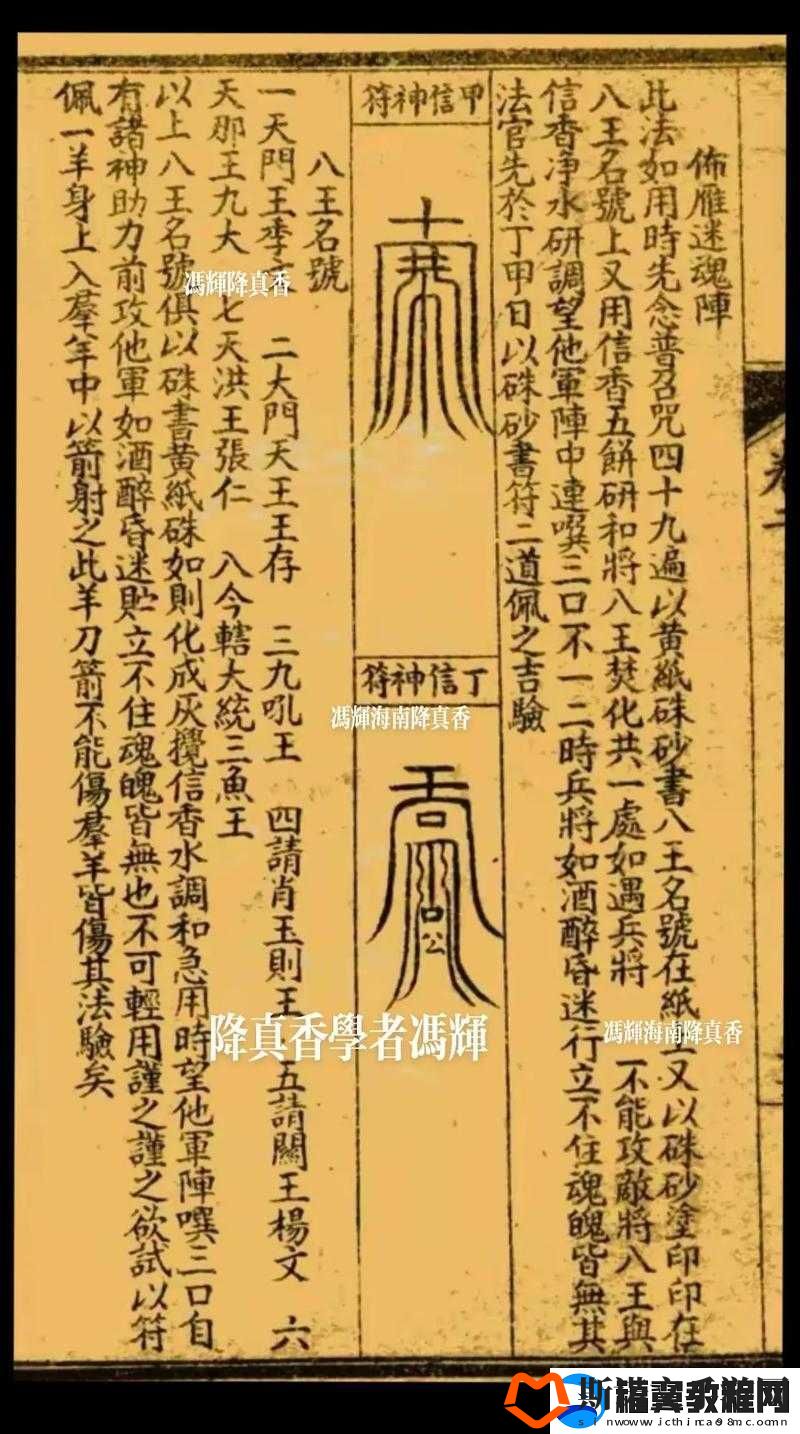 佈雁迷魂陣
此法如用時先念普召咒四十九遍以黃紙硃砂書八王名號在紙上又以硃砂塗印印在
八王名號上又用信香五餅研和將八王焚化共一處如遇兵將 不能攻敵將八王與
信香淨水研調望他軍陣中連噀三口不一二時兵將如酒醉昏迷行立不住魂魄皆無其
法官先於丁甲日以硃砂書符二道佩之吉驗
符神信甲
符神信丁
八王名號
一天門王李 二大門天王王存 三九吼王 四請肖玉則王 五請關王楊文 六
天那王九大 七天洪王張仁 八今轄大統三魚王
以上八王名號俱以硃書黃紙硃如則化成灰攪信香水調和急用時望他軍陣噀三口自
有諸神助力前攻他軍如酒醉昏迷貯立不住魂魄皆無也不可輕用謹之謹之欲試以符
佩一羊身上入羣羊中以箭射之此羊刀箭不能傷羣羊皆傷其法驗矣
卷二
馮輝降真香
馮輝海南降真香
馮輝海南降真香
降真香學者馮輝